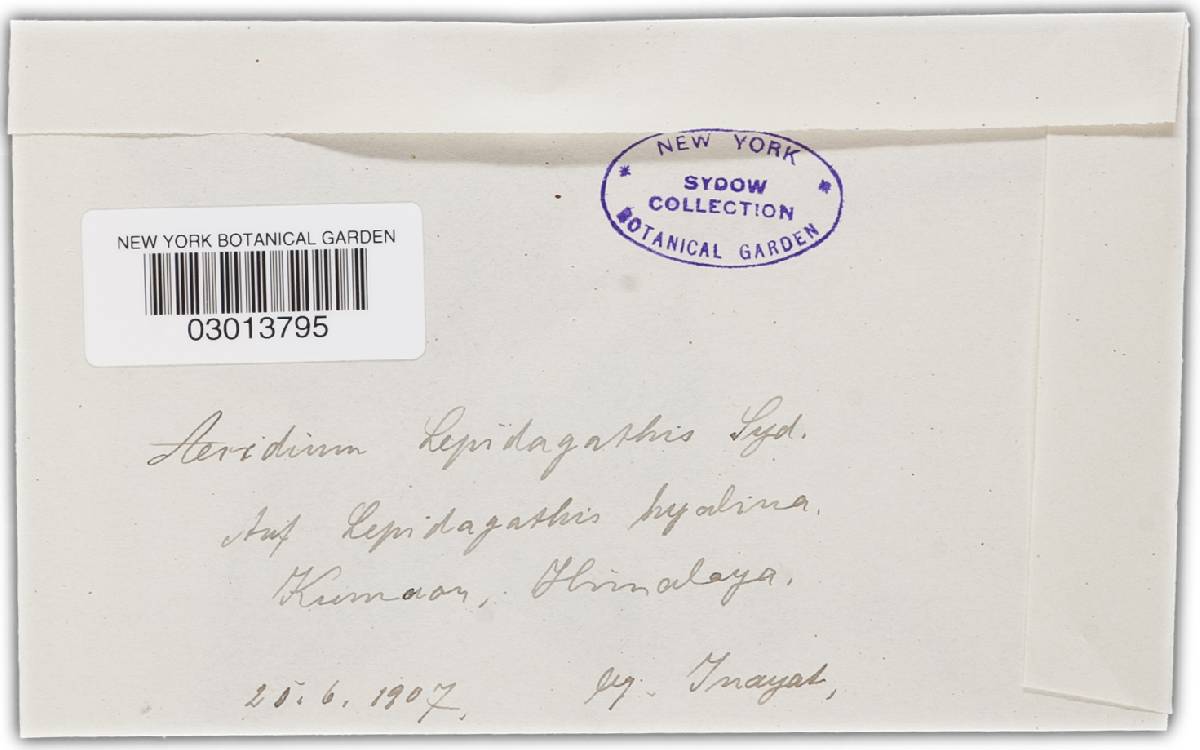 NEW YORK
SYDOW
COLLECTION
BOTANICAL GARDEN
NEW YORK BOTANICAL GARDEN
03013795
Aecidium Lepidagathis Syd.
Auf Lepidagathis hyalina.
Kumaon, Himalaya.
25.6.1907. leg. Inayat,